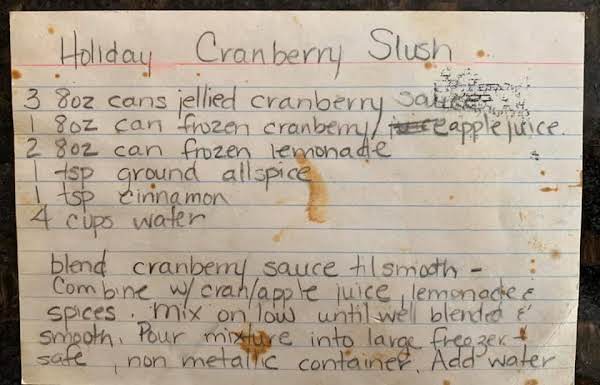 Holiday Cranberry Slush
3 8oz cans jellied cranberry sauce
1 8oz can frozen cranberry/ apple juice.
2 8oz can frozen lemonade
1 tsp ground allspice
1 tsp cinnamon
4 cups water
blend cranberry sauce til smooth -
Combine w/ cran/apple juice, lemonade &
spices. mix on low until well blended &
smooth. Pour mixture into large freezer -
safe, non metallic container. Add water